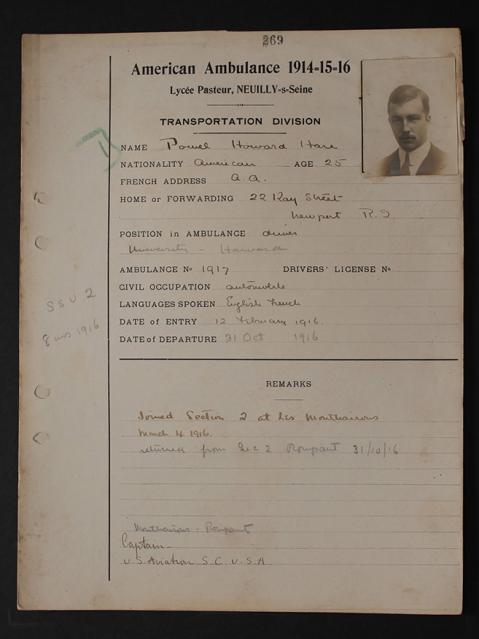 269
American Ambulance 1914-15-16
Lycée Pasteur, NEUILLY-s-Seine
TRANSPORTATION DIVISION
NAME Powel Howard Hare
NATIONALITY American AGE 25
FRENCH ADDRESS A.A.
HOME or FORWARDING 22 Kay Street
Newport R.I.
POSITION in AMBULANCE driver
University - Harvard
AMBULANCE No 1917 DRIVERS' LICENSE No
CIVIL OCCUPATION automobile
LANGUAGES SPOKEN English French
DATE of ENTRY 12 February 1916.
DATE of DEPARTURE 31 Oct 1916
SSU 2
8 mos 1916
REMARKS
Joined Section 2 at les Monthairons
March 4 1916.
returned from Sec 2 Rampont 31/10/16
Monthairons - Rampont
Captain
U.S. Aviation S.C. U.S.A.